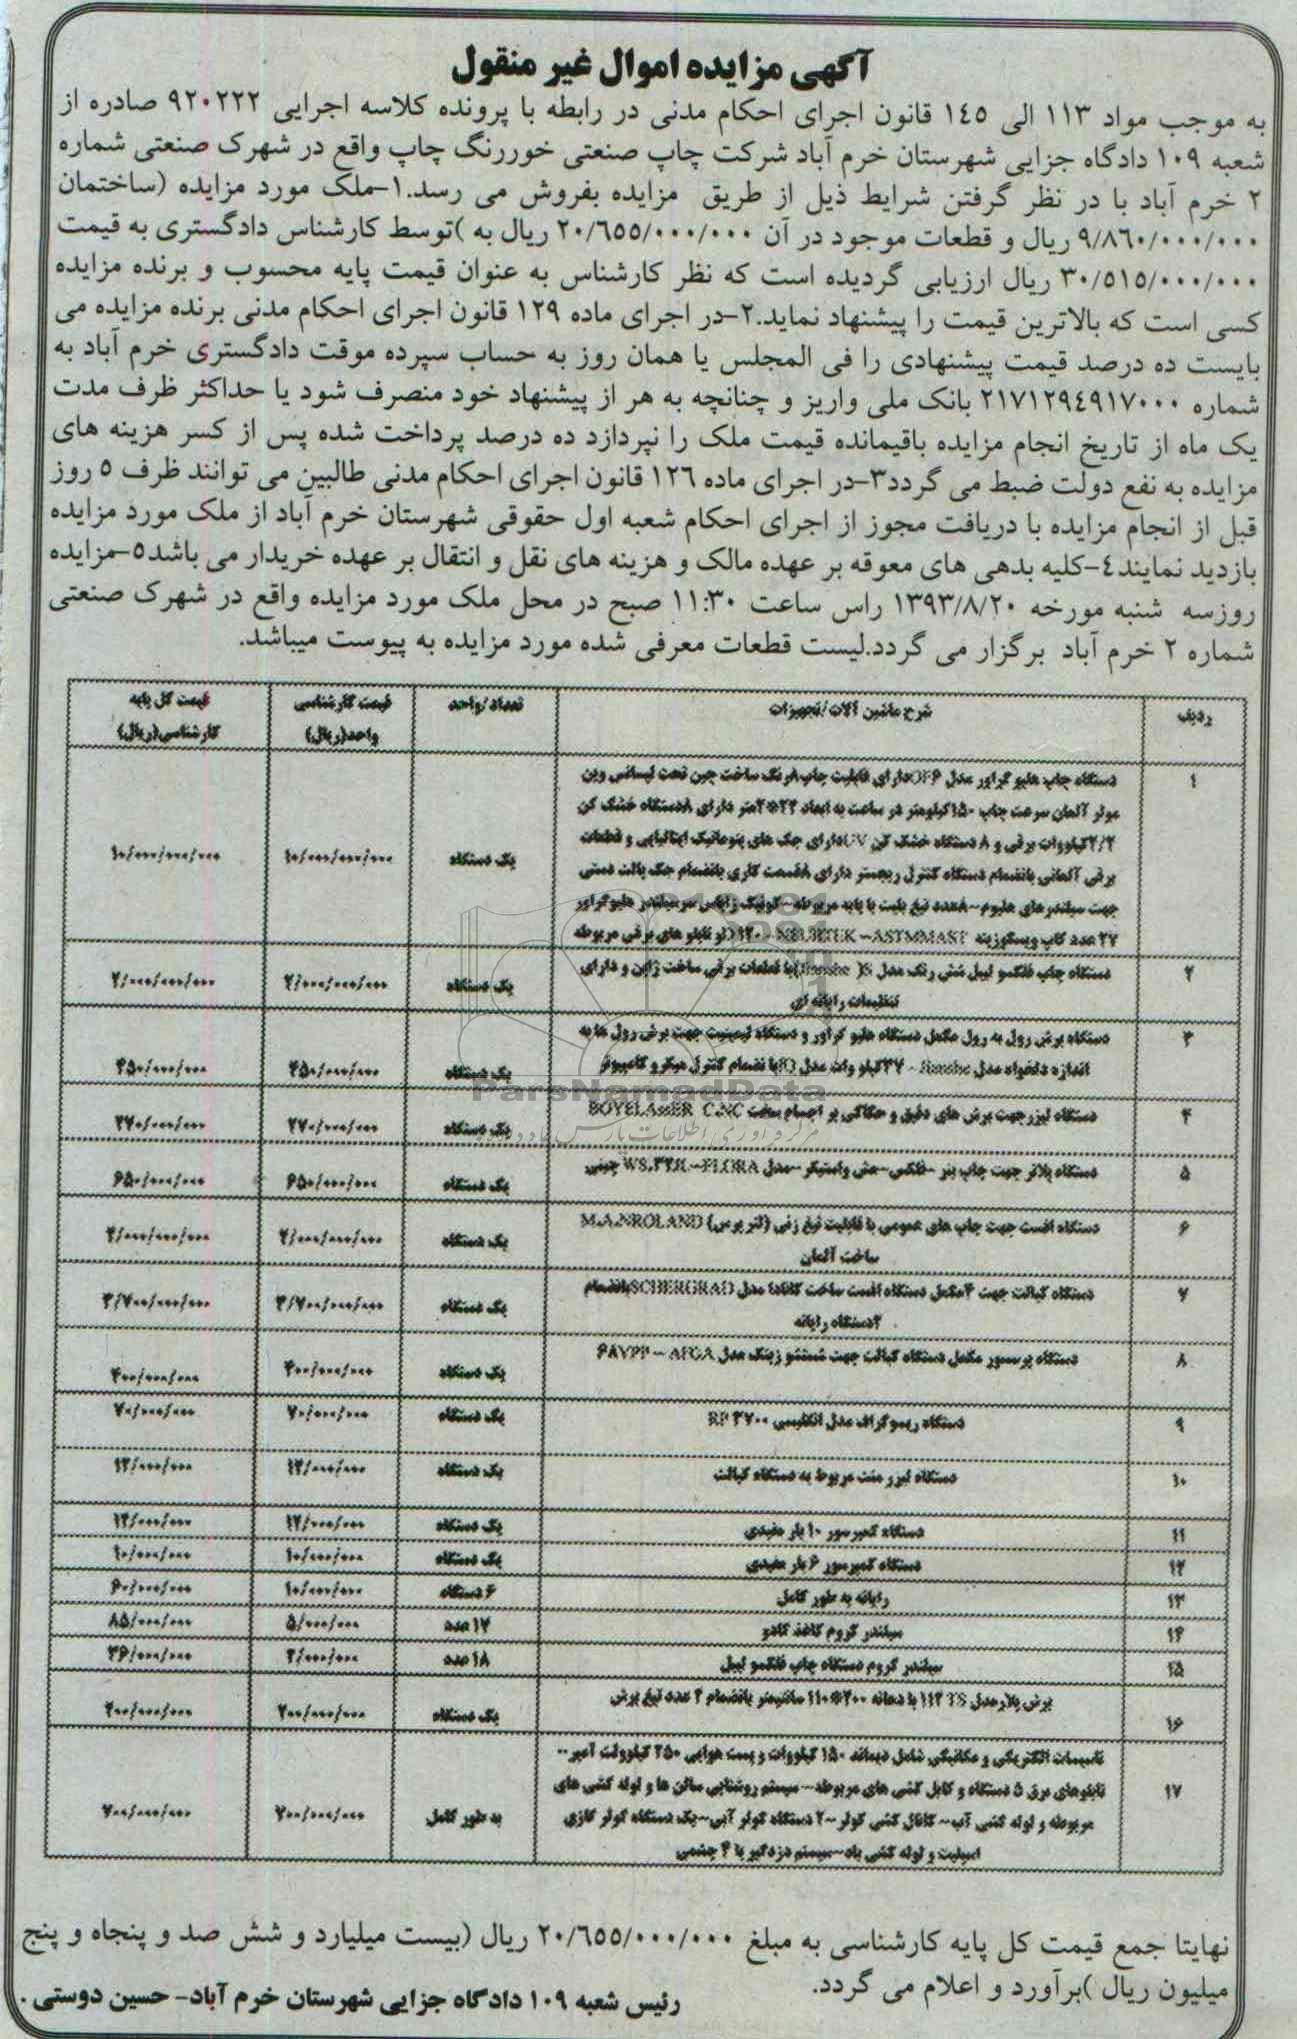 آگهی مزایده اموال غیر منقول
به موجب مواد ۱۱۳ الی ۱٤٥ قانون اجرای احکام مدنی در رابطه با پرونده کلاسه اجرایی ۹۲۰۲۲۲ صادره از
شعبه ۱۰۹ دادگاه جزایی شهرستان خرم آباد شرکت چاپ صنعتی خوررنگ چاپ واقع در شهرک صنعتی شماره
۲ خرم آباد با در نظر گرفتن شرایط ذیل از طریق مزایده بفروش می رسد.۱-ملک مورد مزایده (ساختمان
۹/۸٦۰/۰۰۰/۰۰۰ ریال و قطعات موجود در آن ۲۰/٦٥٥/۰۰۰/۰۰۰ ریال به )توسط کارشناس دادگستری به قیمت
۳۰/٥۱٥/۰۰۰/۰۰۰ ریال ارزیابی گردیده است که نظر کارشناس به عنوان قیمت پایه محسوب و برنده مزایده
کسی است که بالاترین قیمت را پیشنهاد نماید.۲-در اجرای ماده ۱۲۹ قانون اجرای احکام مدنی برنده مزایده می
بایست ده درصد قیمت پیشنهادی را فی المجلس یا همان روز به حساب سپرده موقت دادگستری خرم آباد به
شماره ۲۱۷۱۲۹٤۹۱۷۰۰۰ بانک ملی واریز و چنانچه به هر از پیشنهاد خود منصرف شود یا حداکثر ظرف مدت
یک ماه از تاریخ انجام مزایده باقیمانده قیمت ملک را نپردازد ده درصد پرداخت شده پس از کسر هزینه های
مزایده به نفع دولت ضبط می گردد۳-در اجرای ماده ۱۲٦ قانون اجرای احکام مدنی طالبین می توانند ظرف ٥ روز
قبل از انجام مزایده با دریافت مجوز از اجرای احکام شعبه اول حقوقی شهرستان خرم آباد از ملک مورد مزایده
بازدید نمایند٤-کلیه بدهی های معوقه بر عهده مالک و هزینه های نقل و انتقال بر عهده خریدار می باشد٥-مزایده
روزسه شنبه مورخه ۱۳۹۳/۸/۲۰ راس ساعت ۱۱:۳۰ صبح در محل ملک مورد مزایده واقع در شهرک صنعتی
شماره ۲ خرم آباد برگزار می گردد.لیست قطعات معرفی شده مورد مزایده به پیوست میباشد.
ردیف شرح ماشین آلات/تجهیزات تعداد/واحد قیمت کارشناسی واحد(ریال) قیمت کل پایه کارشناسی(ریال)
۱ دستگاه چاپ هلیو گراور مدل دارای قابلیت چاپ ۸رنگ ساخت چین تحت لیسانس وین
موئر آلمان سرعت چاپ ۱۵۰کیلومتر در ساعت به ابعاد متر دارای ۸دستگاه خشک کن
۲/۲کیلووات برقی و ۸ دستگاه خشک کن UVدارای جک های پنوماتیک ایتالیایی و قطعات
برقی آلمانی بانضمام دستگاه کنترل ریجستر دارای ۸قسمت کاری بانضمام جک پالت دستی
جهت سیلندرهای هلیوم-۸عدد تیغ بلیت با پایه مربوطه
۲۷ عدد کاپ ویسکوزیته تابلو های برقی مربوطه
یک دستگاه ۱۰/۰۰۰/۰۰۰/۰۰۰ ۱۰/۰۰۰/۰۰۰/۰۰۰
۲ دستگاه چاپ فلکسو لیبل شش رنگ مدل با قطعات برقی ساخت ژاپن و دارای
تنظیمات رایانه ای یک دستگاه ۲/۰۰۰/۰۰۰/۰۰۰ ۲/۰۰۰/۰۰۰/۰۰۰
۳ دستگاه برش رول به رول مکمل دستگاه هلیو گراور و دستگاه لیمینیت جهت برش رول ها به
اندازه دلخواه مدل ۳۷کیلو وات مدل با نضمام کنترل میکرو کامپیوتر یک دستگاه ۴۵۰/۰۰۰/۰۰۰ ۴۵۰/۰۰۰/۰۰۰
۴ دستگاه لیزرجهت برش های دقیق و حکاکی بر اجسام سخت CNC یک دستگاه ۲۷۰/۰۰۰/۰۰۰ ۲۷۰/۰۰۰/۰۰۰
۵ دستگاه پلاتر جهت چاپ بنر -فلکس-مش واستیکر-مدل FLORA چینی یک دستگاه ۶۵۰/۰۰۰/۰۰۰ ۶۵۰/۰۰۰/۰۰۰
۶ دستگاه افست جهت چاپ های عمومی با قابلیت تیغ زنی (لتر پرس) M.A.NROLAND
ساخت آلمان یک دستگاه ۲/۰۰۰/۰۰۰/۰۰۰ ۲/۰۰۰/۰۰۰/۰۰۰
۷ دستگاه کپالت جهت مکمل دستگاه افست ساخت کانادا مدل SCHERGRADبانضمام
۲دستگاه رایانه یک دستگاه ۳/۷۰۰/۰۰۰/۰۰۰ ۳/۷۰۰/۰۰۰/۰۰۰
۸ دستگاه پرسسور مکمل دستگاه کپالت جهت شستشو زینک مدل یک دستگاه ۴۰۰/۰۰۰/۰۰۰ ۴۰۰/۰۰۰/۰۰۰
۹ دستگاه ریسوگراف مدل انگلیسی RP ۳۷۰۰ یک دستگاه ۷۰/۰۰۰/۰۰۰ ۷۰/۰۰۰/۰۰۰
۱۰ دستگاه لیزر منت مربوط به دستگاه کپالت یک دستگاه ۱۲/۰۰۰/۰۰۰ ۱۲/۰۰۰/۰۰۰
۱۱ دستگاه کمپرسور ۱۰ بار مفیدی یک دستگاه ۱۲/۰۰۰/۰۰۰ ۱۲/۰۰۰/۰۰۰
۱۲ دستگاه کمپرسور ۶ بار مفیدی یک دستگاه ۱۰/۰۰۰/۰۰۰ ۱۰/۰۰۰/۰۰۰
۱۳ رایانه به طور کامل ۶ دستگاه ۱۰/۰۰۰/۰۰۰ ۶۰/۰۰۰/۰۰۰
۱۴ سیلندر کروم کاغذ کادو ۱۷ عدد ۵/۰۰۰/۰۰۰ ۸۵/۰۰۰/۰۰۰
۱۵ سیلندر کروم دستگاه چاپ فلکسو لیبل ۱۸ عدد ۲/۰۰۰/۰۰۰ ۳۶/۰۰۰/۰۰۰
۱۶ برش پلارمدل با دهانه ۲۰۰*۱۱۰ سانتیمتر بانضمام ۲ عدد تیغ برش یک دستگاه ۲۰۰/۰۰۰/۰۰۰ ۲۰۰/۰۰۰/۰۰۰
۱۷ تاسیسات الکتریکی و مکانیکی شامل دیماند ۱۵۰ کیلووات و پست هوایی ۲۵۰ کیلوولت آمپر--
تابلوهای برق ۵ دستگاه و کابل کشی های مربوطه-سیستم روشنایی سالن ها و لوله کشی های
مربوطه و لوله کشی آب-کانال کشی کولر-۲ دستگاه کولر آبی-یک دستگاه کولر گازی
اسپلیت و لوله کشی باد-سیستم دزدگیر با ۴ چشمی
به طور کامل ۷۰۰/۰۰۰/۰۰۰ ۷۰۰/۰۰۰/۰۰۰
ParsNamadData
نهایتا جمع قیمت کل پایه کارشناسی به مبلغ ۲۰/٦٥٥/۰۰۰/۰۰۰ ریال (بیست میلیارد و شش صد و پنجاه و پنج
میلیون ریال )برآورد و اعلام می گردد.
رئیس شعبه ۱۰۹ دادگاه جزایی شهرستان خرم آباد- حسین دوستی .